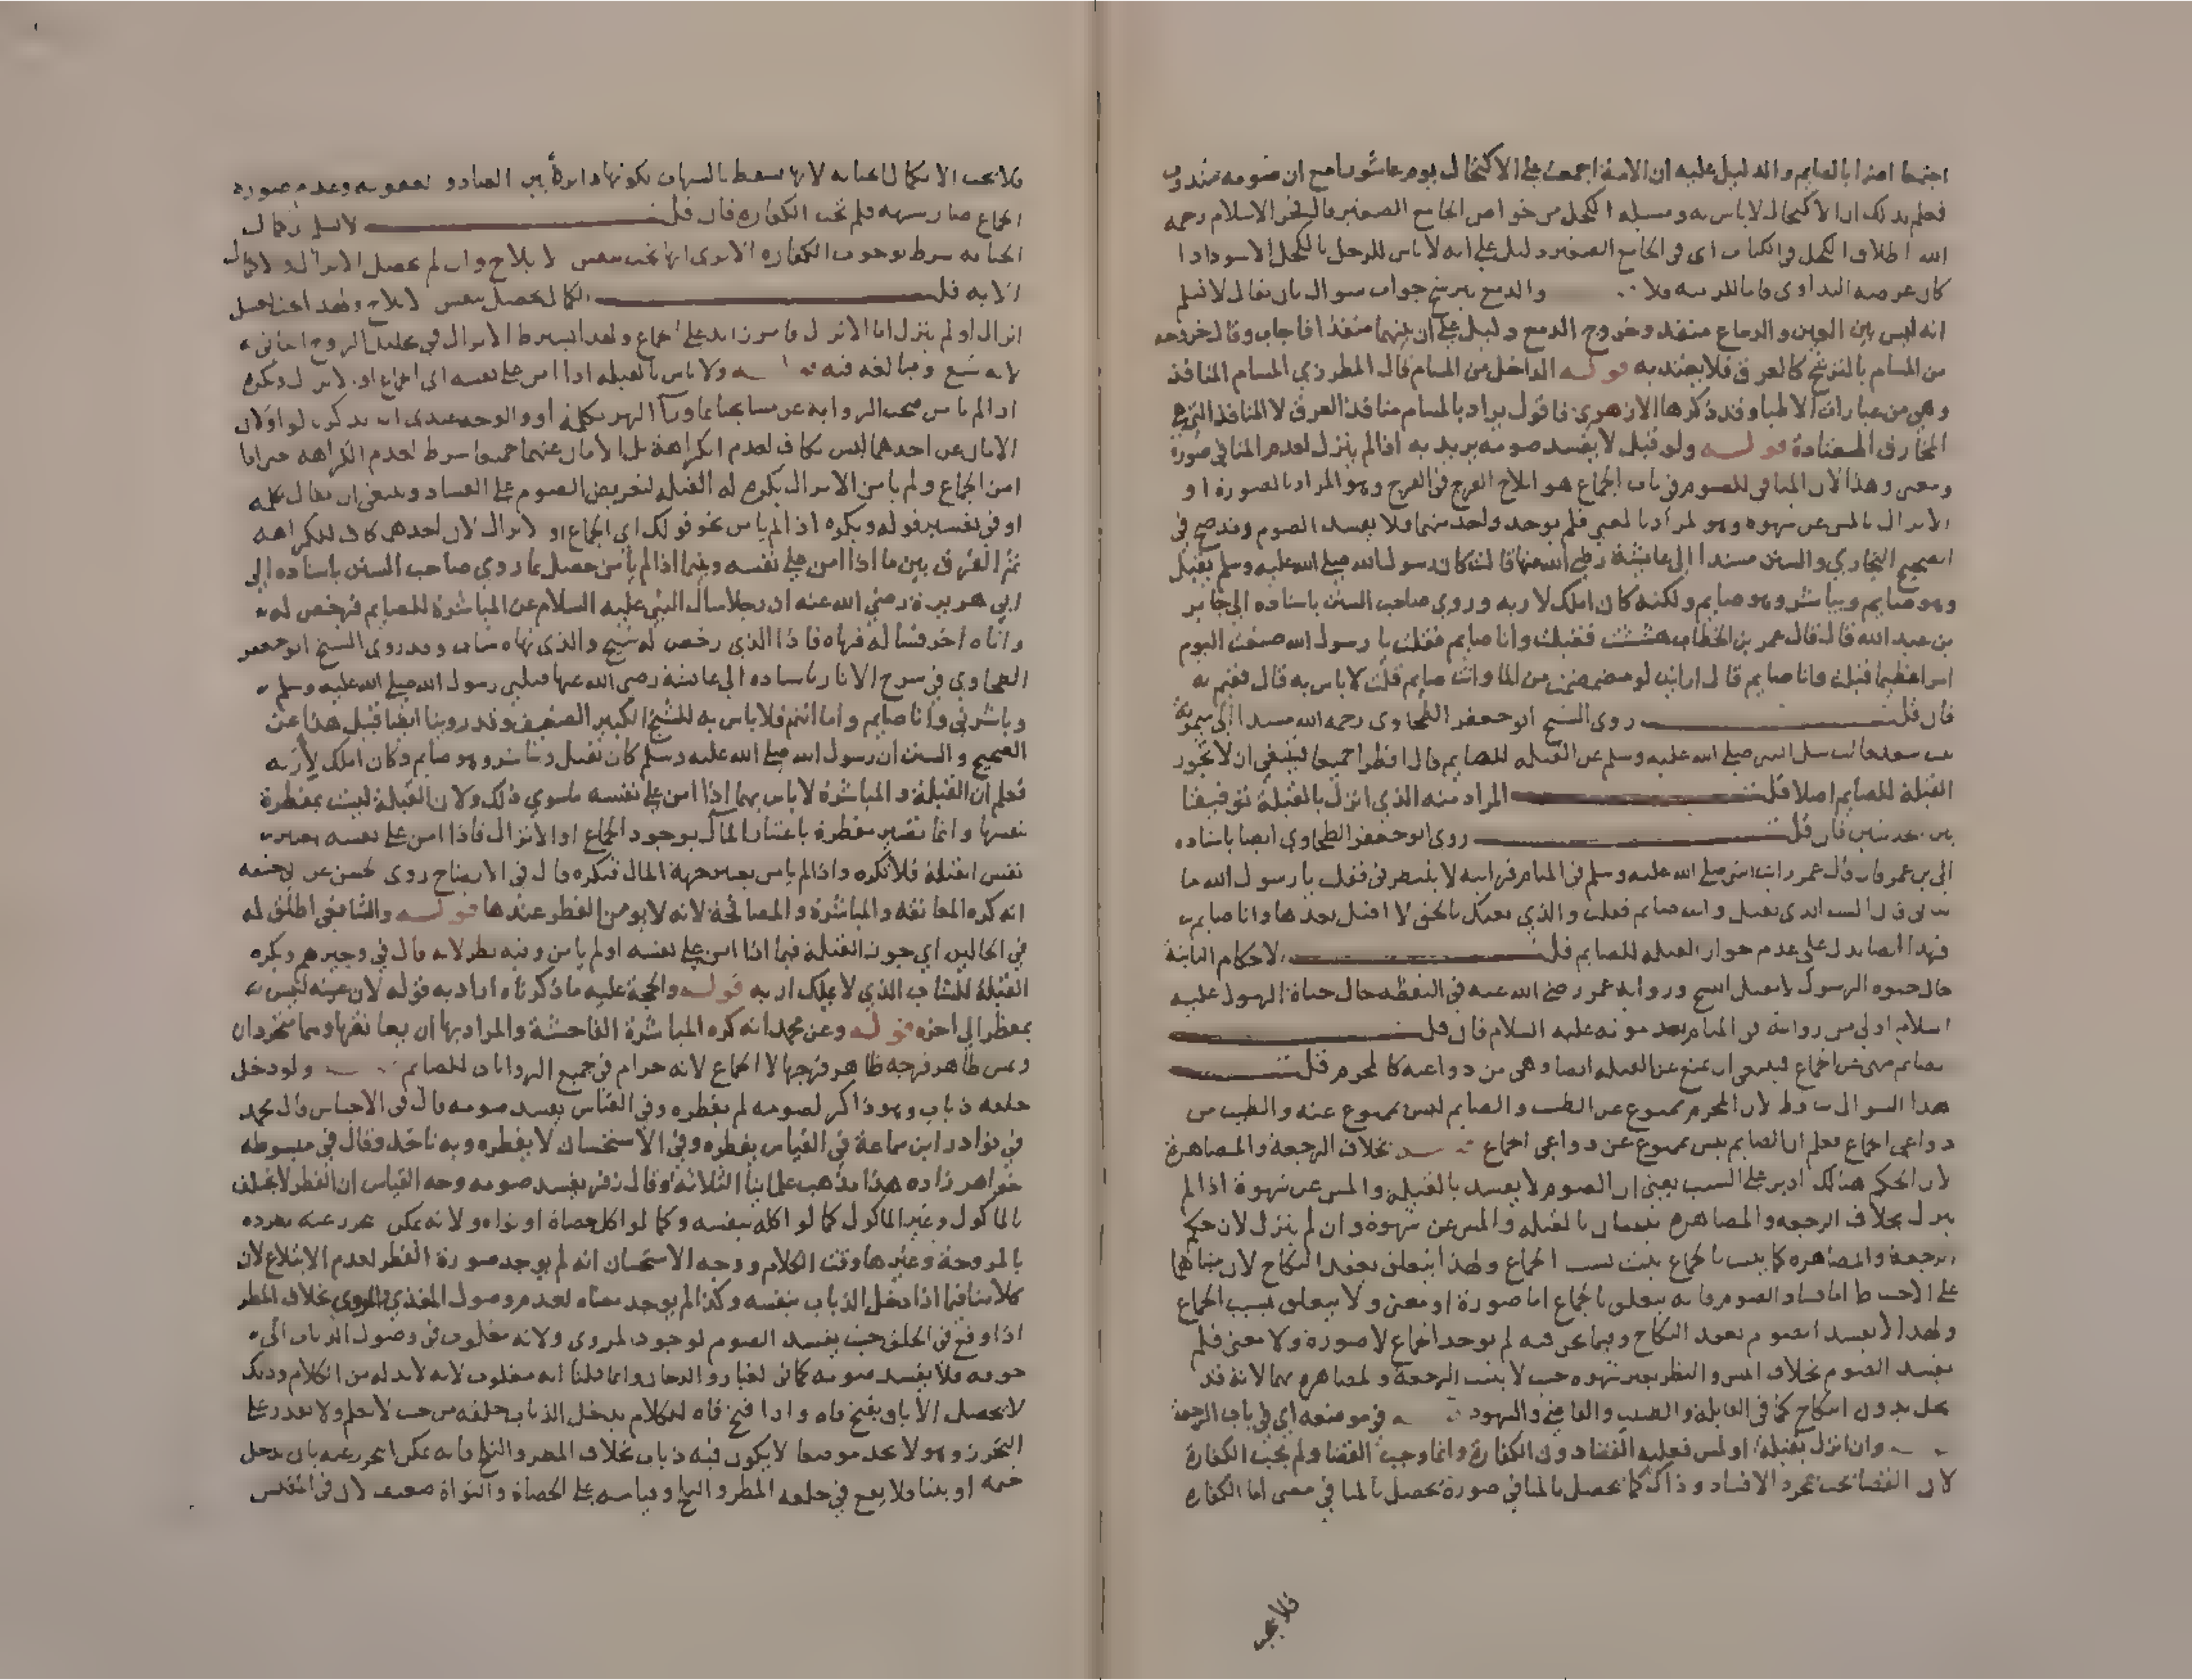 اجتمعا اضرا بالصايم والدليل عليه ان الامة اجمعت على الاكتحال يوم عاشورا مع ان صومه مندوب
فعلم بذلك ان الاكتحال لا باس به ومسيلة الكحل من خواص الجامع الصغير قال فخر الاسلام رحمه
الله اطلاق الكحل في الكتاب اى في الجامع الصغير دليل على انه لا باس للرجل بالكحل الاسود اذا
كان غرضه التداوي فاما للزينه فلا والدمع يترشح جواب سوال بان يقال لا نسلم
انه ليس بين العين والدماغ منفذ وخروج الدمع دليل على ان بينهما منفذا فاجاب وقال خروجه
من المسام بالترشح كالعرق فلا يعتد به قوله الداخل من المسام قال المطرزي المسام المنافذ
وهي من عبارات الاطبا وقد ذكرها الازهري فاقول يراد بالمسام منافذ العرق لا المنافذ التي هي
المخارق المعتادة قوله ولو قبل لا يفسد صومه يريد به اذا لم ينزل لعدم المنافي صورة
ومعنى وهذا لان المنافي للصوم في باب الجماع هو ايلاج الفرج في الفرج وهو المراد بالصورة او
الانزال بالمس عن شهوة وهو المراد بالمعنى فلم يوجد واحد منهما فلا يفسد الصوم وقد صح في
الصحيح البخاري والسنن مسندا الى عايشة رضي الله عنها قالت كان رسول الله صلى الله عليه وسلم يقبل
وهو صايم ويباشر وهو صايم ولكنه كان املك لاربه وروي صاحب السنن باسناده الى جابر
بن عبد الله قال قال عمر بن الخطاب هششت فقبلت وانا صايم فقلت يا رسول الله صنعت اليوم
امرا عظيما قبلت وانا صايم قال ارايت لو مضمضت من الما وانت صايم قلت لا باس به قال ففيم به
فان قلت روى الشيخ ابو جعفر الطحاوى رحمه الله مسندا الى ميمونة
بنت سعد قالت سئل النبي صلى الله عليه وسلم عن القبلة للصايم قال افطرا جميعا فينبغي ان لا تجوز
القبلة للصايم اصلا قلت المراد منه الذي انزل بالقبلة توفيقا
بين الحديثين فان قلت روى ابو جعفر الطحاوي ايضا باسناده
الى بن عمر قال قال عمر رايت النبي صلى الله عليه وسلم في المنام فرايته لا ينظرني فقلت يا رسول الله ما
شاني قال الست الذي تقبل وانت صايم فقلت والذي بعثك بالحق لا اقبل بعدها وانا صايم
فهذا ايضا يدل على عدم جواز القبلة للصايم قلت الاحكام الثابتة
حال حيوة الرسول لا تقبل النسخ ورواية عمر رضي الله عنه في اليقظة حال حياة الرسول عليه
السلام اولى من رواية في المنام بعد موته عليه السلام فان قلت
الصايم منهي عن الجماع فينبغي ان يمنع عن القبلة ايضا وهي من دواعيه كالمحرم قلت
هذا السوال ساقط لان المحرم ممنوع عن الطيب والصايم ليس بممنوع عنه والطيب من
دواعي الجماع فعلم ان الصايم ليس بممنوع عن دواعي الجماع قوله بخلاف الرجعة والمصاهرة
لان الحكم هنالك ادير على السبب يعني ان الصوم لا يفسد بالقبلة والمس عن شهوة اذا لم
ينزل بخلاف الرجعة والمصاهرة يثبتان بالقبلة والمس عن شهوة وان لم ينزل لان حكم
الرجعة والمصاهرة كما يثبت بالجماع يثبت بسبب الجماع ولهذا يتعلق بعقد النكاح لان مبناهما
على الاحتياط اما فساد الصوم فانه يتعلق بالجماع اما صورة او معنى ولا يتعلق بسبب الجماع
ولهذا لا يفسد الصوم بعقد النكاح وفيما نحن فيه لم يوجد الجماع لا صورة ولا معنى فلم
يفسد الصوم بخلاف المس والنظر بغير شهوة حيث لا يثبت الرجعة والمصاهرة بهما لانه قد
يحل بدون النكاح كما في القابلة والطبيب والقاضي والشهود في موضعه اي في باب الرجعة
وان انزل بقبلة او لمس فعليه القضا دون الكفارة وانما وجب القضا ولم تجب الكفارة
لان القضا يجب بمجرد الافساد وذاك كما يحصل بالمنافي صورة يحصل بالمنافي معنى اما الكفارة
فلا يجب
فلا يجب الا بكمال الجناية لانها تسقط بالشبهات لكونها دايرة بين العبادة والعقوبه وعدم صورة
الجماع صار شبهه فلم تجب الكفارة فان قلت لا نسلم ان كمال
الجناية شرط لوجوب الكفارة الا ترى انها تجب بنفس الايلاج وان لم يحصل الانزال ولا كمال
الا به قلت الكمال يحصل بنفس الايلاج ولهذا يجب الغسل
انزل او لم ينزل اما الانزال فامر زايد على الجماع ولهذا لم يشترط الانزال في تحليل الزوج الثاني
لانه شبع ومبالغة فيه قوله ولا باس بالقبلة اذا امن على نفسه اى الجماع او الانزال ويكره
اذا لم يامن صحت الرواية عن مشايخنا بكلمة او والوجه عندى ان يذكر بالواو لان
الامان عن احدهما ليس بكاف لعدم الكراهة بل الامان عنهما جميعا شرط لعدم الكراهة حتى اذا
امن الجماع ولم يامن الانزال يكره له القبلة لتعريض الصوم على الفساد وينبغي ان يقال بكلمة
او في تفسير قوله ويكره اذا لم يامن نحو قولك اي الجماع او الانزال لان احدهما كاف للكراهه
ثم الفرق بين ما اذا امن على نفسه وبينما اذا لم يامن حصل بما روي صاحب السنن باسناده الى
ابي هريرة رضي الله عنه ان رجلا سال النبي عليه السلام عن المباشرة للصايم فرخص له
واتاه اخر فساله فنهاه فاذا الذي رخص له شيخ والذي نهاه شاب وقد روى الشيخ ابو جعفر
الطحاوي في شرح الاثار باسناده الى عايشة رضي الله عنها قبلني رسول الله صلى الله عليه وسلم
وباشرني وانا صايم واما انتم فلا باس به للشيخ الكبير الضعيف وقد روينا ايضا قبل هذا عن
الصحيح والسنن ان رسول الله صلى الله عليه وسلم كان يقبل ويباشر وهو صايم وكان املك لاربه
فعلم ان القبلة والمباشرة لا باس بهما اذا امن على نفسه ما سوي ذلك ولان القبلة ليست بمفطرة
بنفسها وانما تصير مفطرة باعتبار المال بوجود الجماع او الانزال فاذا امن على نفسه يعتبر
نفس القبلة فلا تكره واذا لم يامن يعتبر جهة المال فتكره قال في الايضاح روى الحسن عن ابي حنيفه
انه كره المعانقه والمباشرة والمصافحة لانه لا يومن الفطر عندها قوله والشافعي اطلق له
في الحالين اي جوز القبلة فيما اذا امن على نفسه او لم يامن وفيه نظر لانه قال في وجيزهم ويكره
القبلة للشاب الذي لا يملك اربه قوله والحجة عليه ما ذكرناه اراد به قوله لان عينه ليس
بمفطر الى اخره قوله وعن محمد انه كره المباشرة الفاحشة والمراد بها ان يعانقها وهما متجردان
ويمس ظاهر فرجه ظاهر فرجها لا الجماع لانه حرام في جميع الروايات للصايم ولو دخل
حلقه ذباب وهو ذاكر لصومه لم يفطره وفي القياس يفسد صومه قال في الاجناس قال محمد
في نوادر ابن سماعة في القياس يفطره وفي الاستحسان لا يفطره وبه ناخذ وقال في مبسوطه
خواهر زاده هذا مذهب علماينا الثلاثة وقال زفر يفسد صومه وجه القياس ان الفطر لا يختلف
بالماكول وغير الماكول كما لو اكله بنفسه وكما لو اكل حصاة او نواه ولانه يمكن التحرز عنه بطرده
بالمروحة وغيرها وقت الكلام ووجه الاستحسان انه لم يوجد صورة الفطر لعدم الابتلاع لان
كلامنا فيما اذا دخل الذباب بنفسه وكذا لم يوجد معناه لعدم وصول المغذي المروي بخلاف المطر
اذا وقع في الحلق حيث يفسد الصوم لوجود المروى ولانه مغلوب في وصول الذباب الى
جوفه فلا يفسد صومه كما في الغبار والدخان وانما قلنا انه مغلوب لانه لابد له من الكلام وذلك
لا يحصل الا بان يفتح فاه واذا فتح فاه للكلام يدخل الذباب حلقه من حيث لا يعلم ولا يقدر على
التحرز وهو لا يجد موضعا لا يكون فيه ذباب بخلاف المطر والثلج فانه يمكن التحرز عنه بان يدخل
خيمه او بيتا فلا يقع في حلقه المطر والثلج وقياسه على الحصاة والنواة ضعيف لان في المقيس